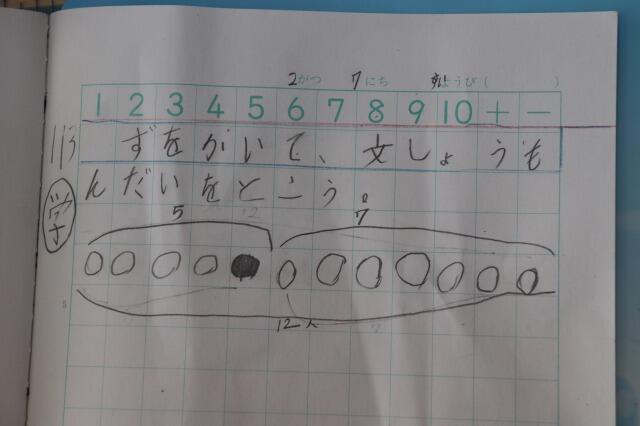 2がつ 7にち ようび( )
1 2 3 4 5 6 7 8 9 10 + −
113 ずをかいて、文しょうも
んだいをとこう。
学
5 7
12人